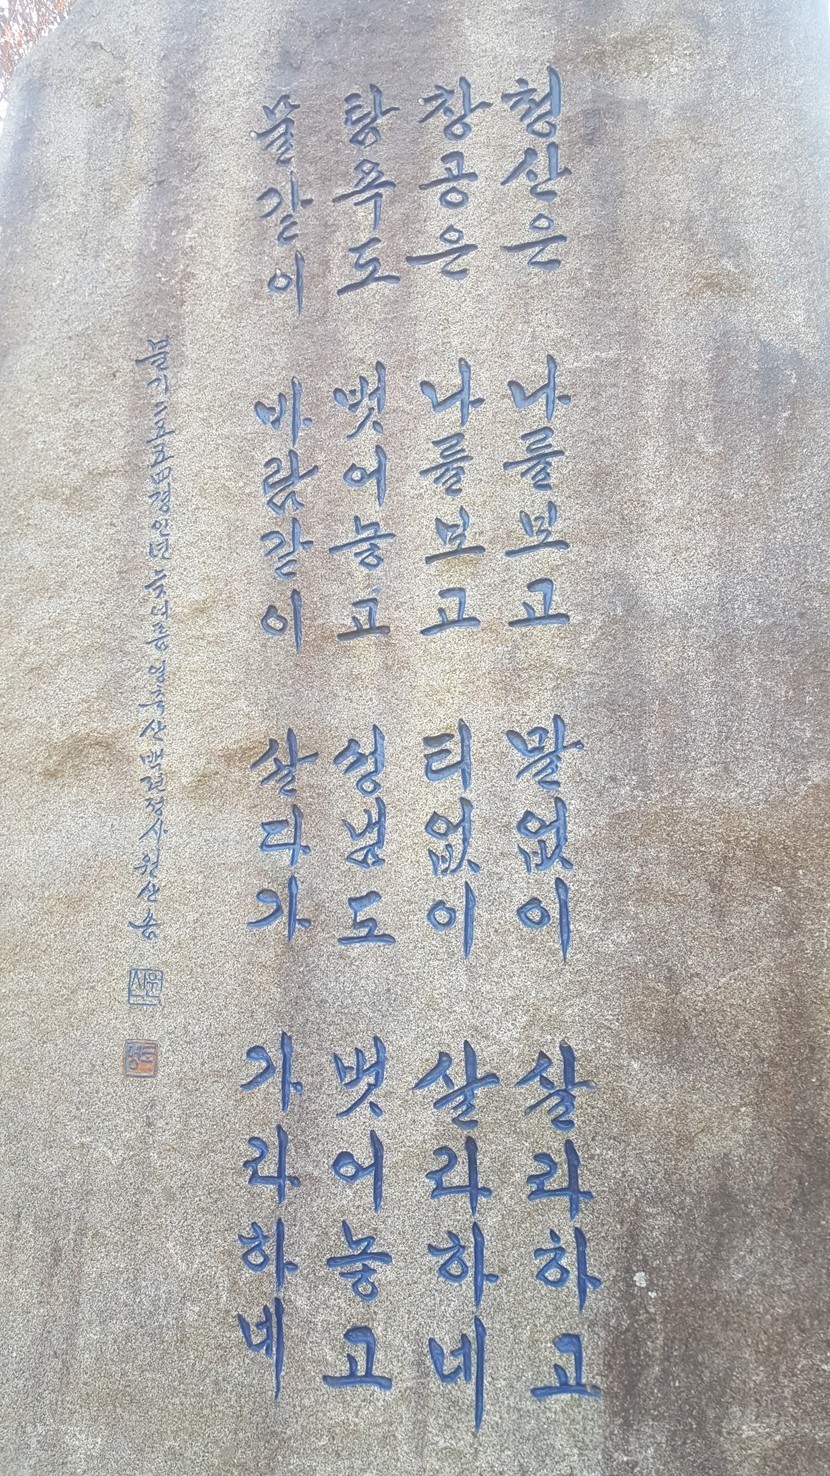 청산은 나를보고 말없이 살라하고
창공은 나를보고 티없이 살라하네
탐욕도 벗어놓고 성냄도 벗어놓고
물같이 바람같이 살다가 가라하네
불기二五五四경인년 영축산 백련정사 원산